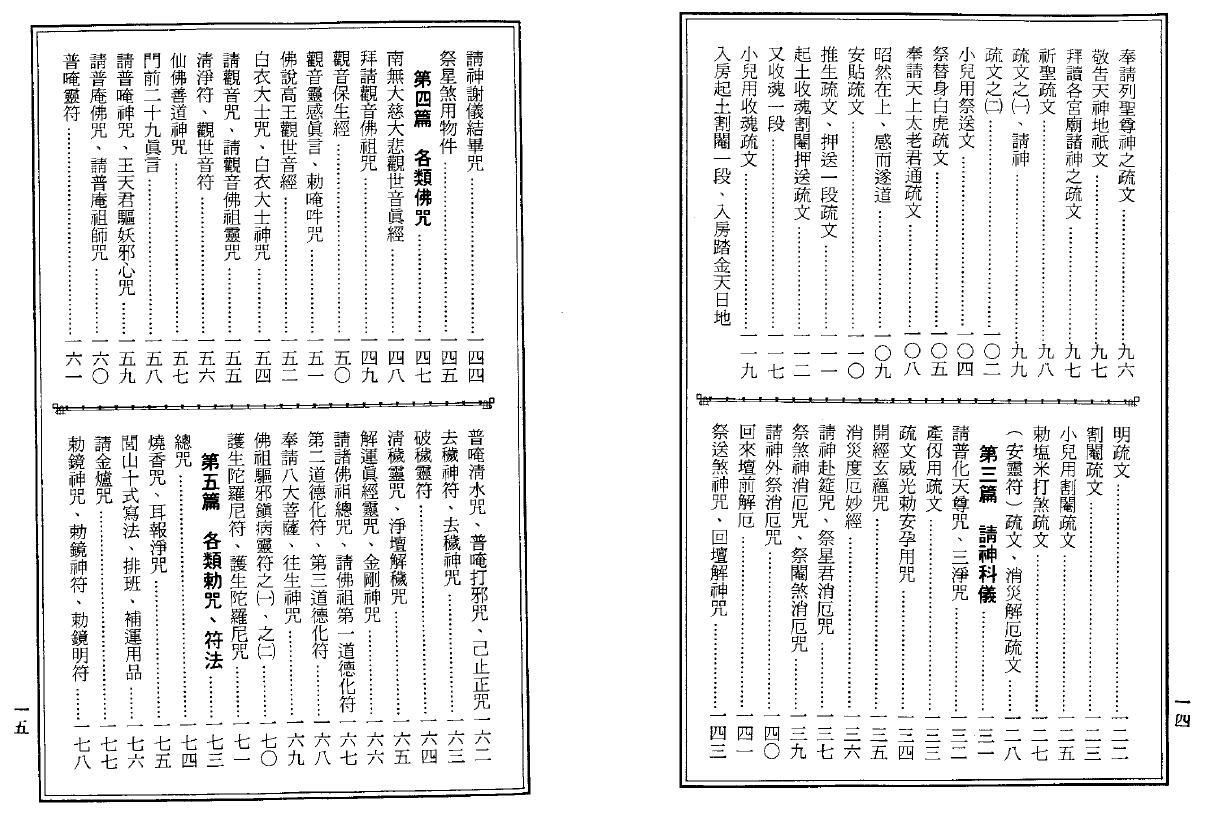 奉請列聖尊神之疏文……九六
敬告天神地祇文……九七
拜讀各宮廟諸神之疏文……九七
祈聖疏文……九八
疏文之㈠、請神……九九
疏文之㈡……一〇二
小兒用祭送文……一〇四
祭替身白虎疏文……一〇五
奉請天上太老君通疏文……一〇八
昭然在上、感而遂道……一〇九
安貼疏文……一一〇
推生疏文、押送一段疏文……一一一
起土收魂割鬮押送疏文……一一二
又收魂一段……一一七
小兒用收魂疏文……一一九
入房起土割鬮一段、入房踏金天日地
明疏文……一二二
割鬮疏文……一二三
小兒用割鬮疏文……一二五
勅塩米打煞疏文……一二七
（安靈符）疏文、消災解厄疏文……一二八
第三篇　請神科儀……一三一
請普化天尊咒、三淨咒……一三二
產伋用疏文……一三三
疏文威光勅安孕用咒……一三四
開經玄蘊咒……一三五
消災度厄妙經……一三六
請神赴筵咒、祭星君消厄咒……一三七
祭煞神消厄咒、祭鬮煞消厄咒……一三九
請神外祭消厄咒……一四〇
回來壇前解厄……一四一
祭送煞神咒、回壇解神咒……一四三
一四
請神謝儀結畢咒……一四四
祭星煞用物件……一四五
第四篇　各類佛咒……一四七
南無大慈大悲觀世音眞經……一四八
拜請觀音佛祖咒……一四九
觀音保生經……一五〇
觀音靈感眞言、勅唵吽咒……一五一
佛說高王觀世音經……一五二
白衣大士咒、白衣大士神咒……一五四
請觀音咒、請觀音佛祖靈咒……一五五
清淨符、觀世音符……一五六
仙佛善道神咒……一五七
門前二十九眞言……一五八
請普唵神咒、王天君驅妖邪心咒……一五九
請普庵佛咒、請普庵祖師咒……一六〇
普唵靈符……一六一
普唵清水咒、普唵打邪咒、己止正咒……一六二
去穢神符、去穢神咒……一六三
破穢靈符……一六四
清穢靈咒、淨壇解穢咒……一六五
解運眞經靈咒、金剛神咒……一六六
請諸佛祖總咒、請佛祖第一道德化符……一六七
第二道德化符、第三道德化符……一六八
奉請八大菩薩、往生神咒……一六九
佛祖驅邪鎭病靈符之㈠、之㈡……一七〇
護生陀羅尼符、護生陀羅尼咒……一七一
第五篇　各類勅咒、符法……一七三
總咒……一七四
燒香咒、耳報淨咒……一七五
閭山十式寫法、排班、補運用品……一七六
請金爐咒……一七七
勅鏡神咒、勅鏡神符、勅鏡明符……一七八
一五